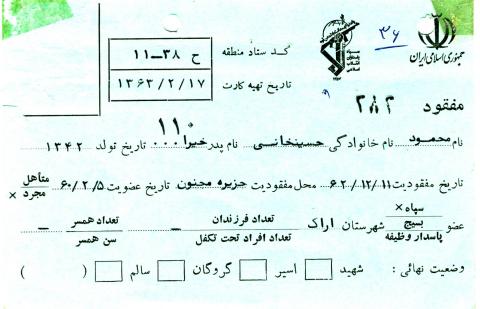 جمهوری اسلامی ایران
۳۶
سپاه پاسداران انقلاب اسلامی
کد ستاد منطقه ح ۳۸-۱۱
تاریخ تهیه کارت ۱۳۶۳/۲/۱۷
مفقود ۲۸۲
۱۱۰۰۰
نام محمود نام خانوادگی حسینخانی نام پدر خیرا تاریخ تولد ۱۳۴۲
تاریخ مفقودیت ۶۲/۱۲/۱۱ محل مفقودیت جزیره مجنون تاریخ عضویت ۶۰/۲/۵ متأهل مجرد ×
عضو سپاه × بسیج پاسدار وظیفه شهرستان اراک تعداد فرزندان — تعداد افراد تحت تکفل تعداد همسر — سن همسر
وضعیت نهائی : شهید اسیر گروگان سالم ( )